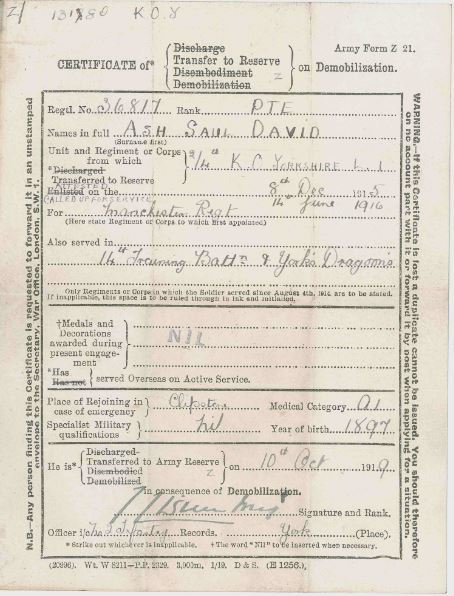 Z/ 131980 K.O.Y
Army Form Z 21.
CERTIFICATE of* { Discharge
Transfer to Reserve
Disembodiment Z
Demobilization } on Demobilization.
Regtl. No. 36817 Rank PTE
Names in full ASH SAUL DAVID
(Surname first)
Unit and Regiment or Corps
from which } 2/4th K O YORKSHIRE L.I
*Discharged
Transferred to Reserve
ATTESTED
Enlisted on the 8th Dec 1915
CALLED UP FOR SERVICE 14th June 1916
For Manchester Regt
(Here state Regiment or Corps to which first appointed)
Also served in
14th Training Battn & Yorks Dragoons
Only Regiments or Corps in which the Soldier served since August 4th, 1914 are to be stated.
If inapplicable, this space is to be ruled through in ink and initialled.
†Medals and
Decorations
awarded during
present engage-
ment } NIL
*Has
Has not } served Overseas on Active Service.
Place of Rejoining in
case of emergency } Clipstone Medical Category A1
Specialist Military
qualifications } Nil Year of birth 1897
He is* { Discharged
Transferred to Army Reserve
Disembodied Z
Demobilized } on 10th Oct 1919
in consequence of Demobilization.
Signature and Rank.
Officer i/c Infantry Records. York (Place).
* Strike out whichever is inapplicable. † The word "Nil" to be inserted when necessary.
(20996). Wt. W 8211—P.P. 2329. 3,000m. 1/19. D & S. (E 1256.)
N.B.—Any person finding this Certificate is requested to forward it in an unstamped
envelope to the Secretary, War Office, London, S.W. 1.
WARNING.—If this Certificate is lost a duplicate cannot be issued. You should therefore
on no account part with it or forward it by post when applying for a situation.